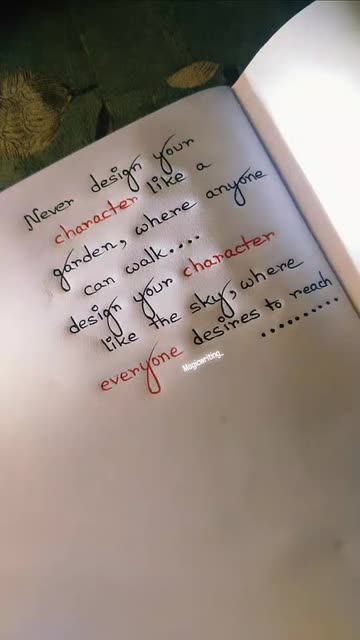 Never design your
character like a
garden, where anyone
can walk....
design your character
like the sky, where
everyone desires to reach
..........
Magicwriting_